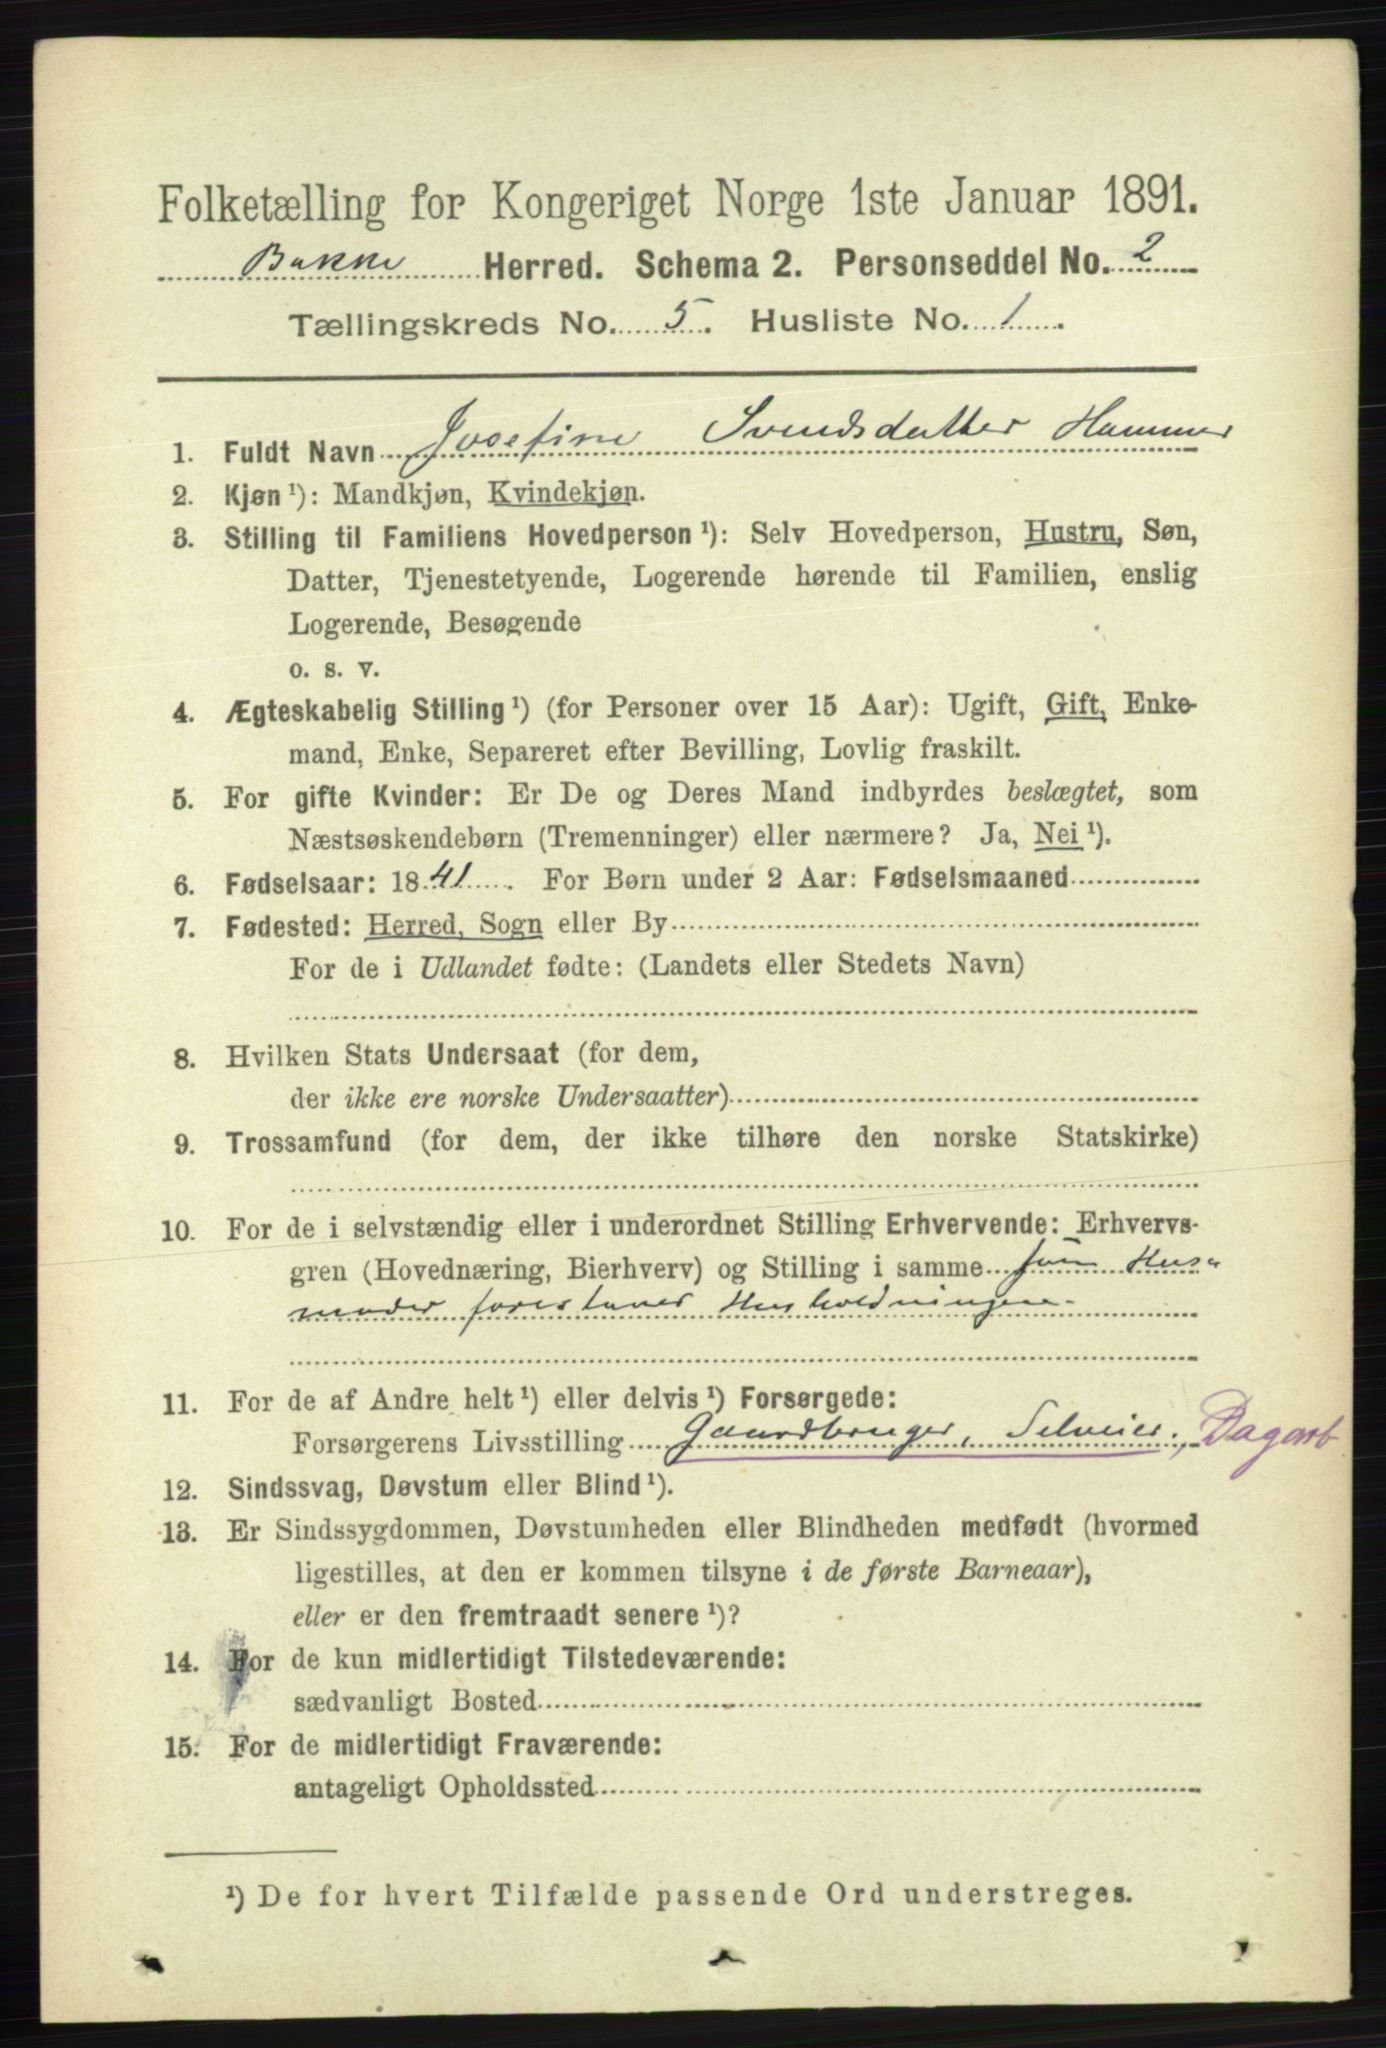 Folketælling for Kongeriget Norge 1ste Januar 1891.
Bakke Herred. Schema 2. Personseddel No. 2
Tællingskreds No. 5. Husliste No. 1.
1. Fuldt Navn Josefine Svendsdatter Hammer
2. Kjøn ¹): Mandkjøn, Kvindekjøn.
3. Stilling til Familiens Hovedperson ¹): Selv Hovedperson, Hustru, Søn,
Datter, Tjenestetyende, Logerende hørende til Familien, enslig
Logerende, Besøgende
o. s. v.
4. Ægteskabelig Stilling ¹) (for Personer over 15 Aar): Ugift, Gift, Enke-
mand, Enke, Separeret efter Bevilling, Lovlig fraskilt.
5. For gifte Kvinder: Er De og Deres Mand indbyrdes beslægtet, som
Næstsøskendebørn (Tremenninger) eller nærmere? Ja, Nei ¹).
6. Fødselsaar: 1841. For Børn under 2 Aar: Fødselsmaaned
7. Fødested: Herred, Sogn eller By
For de i Udlandet fødte: (Landets eller Stedets Navn)
8. Hvilken Stats Undersaat (for dem,
der ikke ere norske Undersaatter)
9. Trossamfund (for dem, der ikke tilhøre den norske Statskirke)
10. For de i selvstændig eller i underordnet Stilling Erhvervende: Erhvervs-
gren (Hovednæring, Bierhverv) og Stilling i samme som Hus-
moder forestaaes Husholdningen.
11. For de af Andre helt ¹) eller delvis ¹) Forsørgede:
Forsørgerens Livsstilling Gaardbruger, Selveier., Dagarb
12. Sindssvag, Døvstum eller Blind ¹).
13. Er Sindssygdommen, Døvstumheden eller Blindheden medfødt (hvormed
ligestilles, at den er kommen tilsyne i de første Barneaar),
eller er den fremtraadt senere ¹)?
14. For de kun midlertidigt Tilstedeværende:
sædvanligt Bosted
15. For de midlertidigt Fraværende:
antageligt Opholdssted
¹) De for hvert Tilfælde passende Ord understreges.